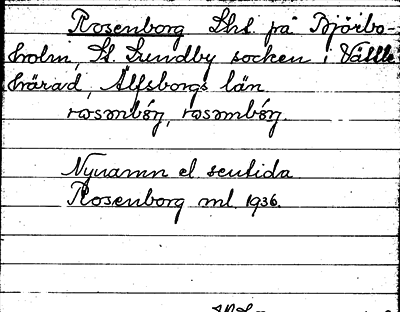 Rosenborg Lht. på Björbo-
holm, St. Lundby socken i Vättle
härad, Älfsborgs län
Nynamn el. sentida
Rosenborg ml. 1936.